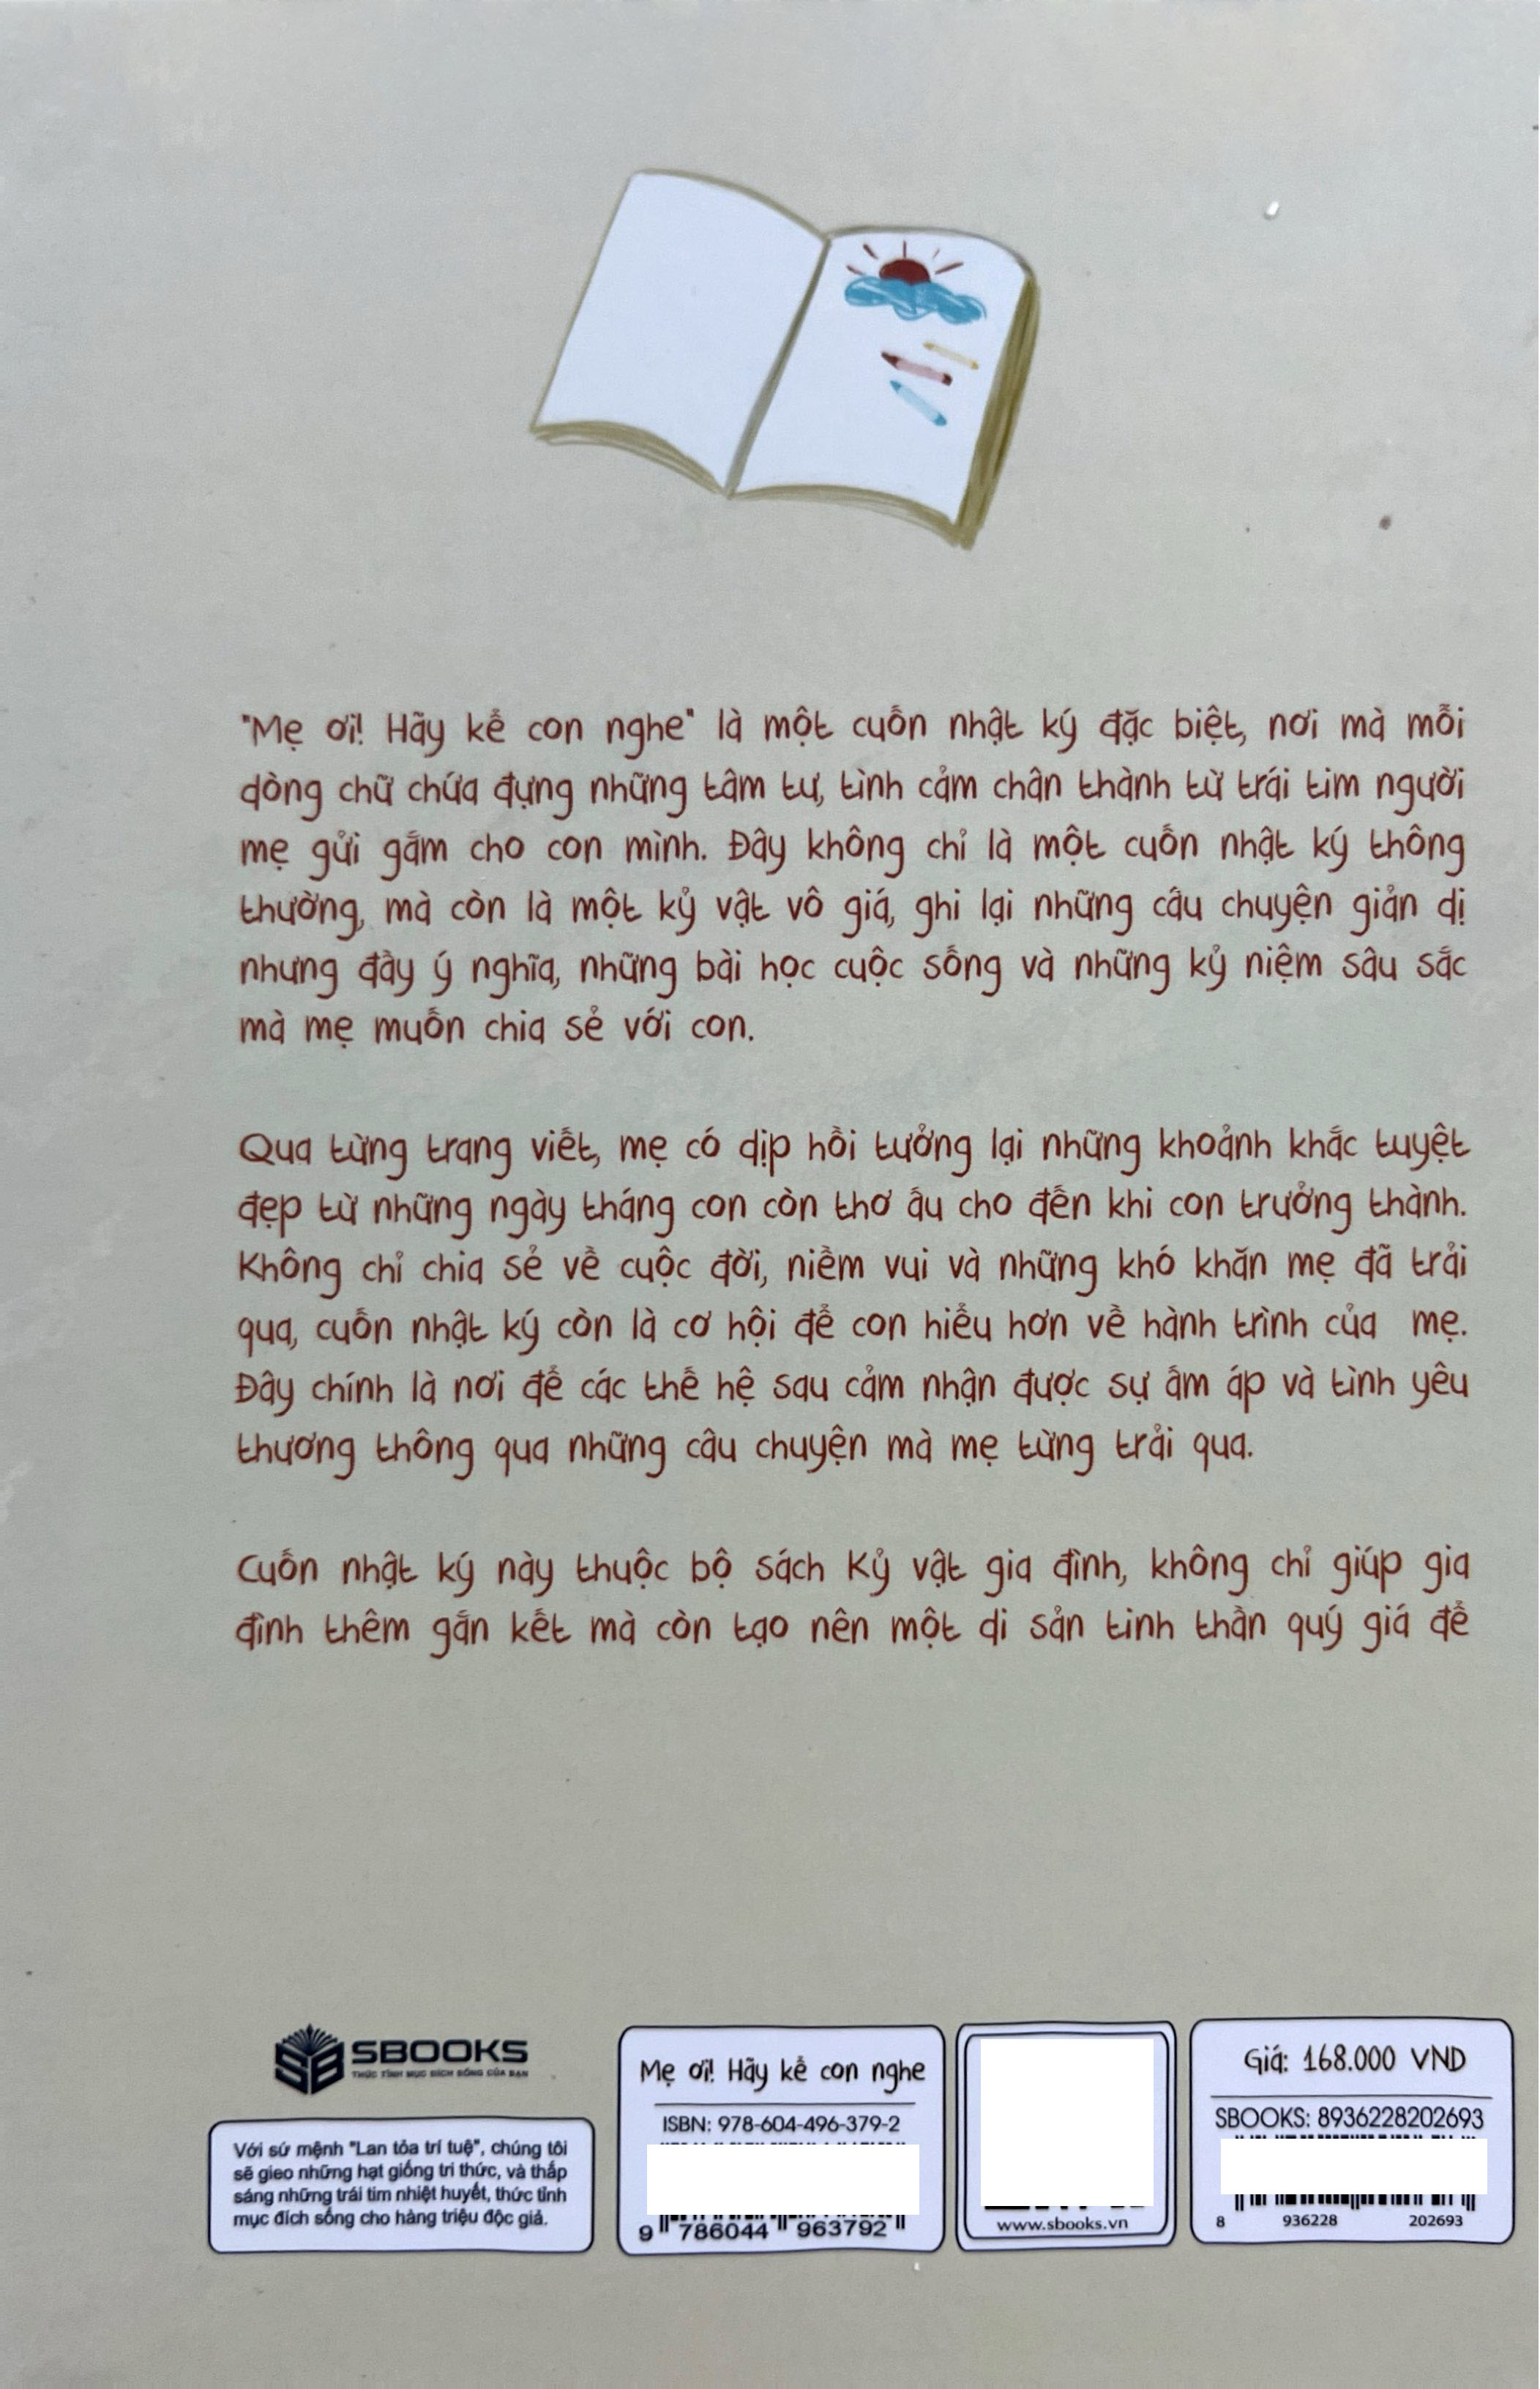 "Mẹ ơi! Hãy kể con nghe" là một cuốn nhật ký đặc biệt, nơi mà mỗi
dòng chữ chứa đựng những tâm tư, tình cảm chân thành từ trái tim người
mẹ gửi gắm cho con mình. Đây không chỉ là một cuốn nhật ký thông
thường, mà còn là một kỷ vật vô giá, ghi lại những câu chuyện giản dị
nhưng đầy ý nghĩa, những bài học cuộc sống và những kỷ niệm sâu sắc
mà mẹ muốn chia sẻ với con.
Qua từng trang viết, mẹ có dịp hồi tưởng lại những khoảnh khắc tuyệt
đẹp từ những ngày tháng con còn thơ ấu cho đến khi con trưởng thành.
Không chỉ chia sẻ về cuộc đời, niềm vui và những khó khăn mẹ đã trải
qua, cuốn nhật ký còn là cơ hội để con hiểu hơn về hành trình của mẹ.
Đây chính là nơi để các thế hệ sau cảm nhận được sự ấm áp và tình yêu
thương thông qua những câu chuyện mà mẹ từng trải qua.
Cuốn nhật ký này thuộc bộ sách Kỷ vật gia đình, không chỉ giúp gia
đình thêm gắn kết mà còn tạo nên một di sản tinh thần quý giá để
SBOOKS
THỨC TỈNH MỤC ĐÍCH SỐNG CỦA BẠN
Với sứ mệnh "Lan tỏa trí tuệ", chúng tôi
sẽ gieo những hạt giống tri thức, và thắp
sáng những trái tim nhiệt huyết, thức tỉnh
mục đích sống cho hàng triệu độc giả.
Mẹ ơi! Hãy kể con nghe
ISBN: 978-604-496-379-2
9 786044 963792
www.sbooks.vn
Giá: 168.000 VND
SBOOKS: 8936228202693
8 936228 202693